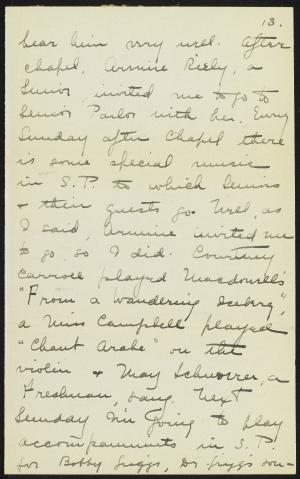 13.
hear him very well. After
chapel, Armine Riely, a
Senior, invited me to go to
Senior Parlor with her. Every
Sunday after Chapel there
is some special music
in S.P. to which Seniors
& their guests go. Well, as
I said, Armine invited me
to go so I did. Courtney
Carroll played Macdowell's
"From a Wandering Iceberg",
a Miss Campbell played
"Chant Arabe" on the
violin & May Schwoerer, a
Freshman, sang. Next
Sunday I'm going to play
accompaniments in S.P.
for Bobby Griggs, Dr. Griggs' son-